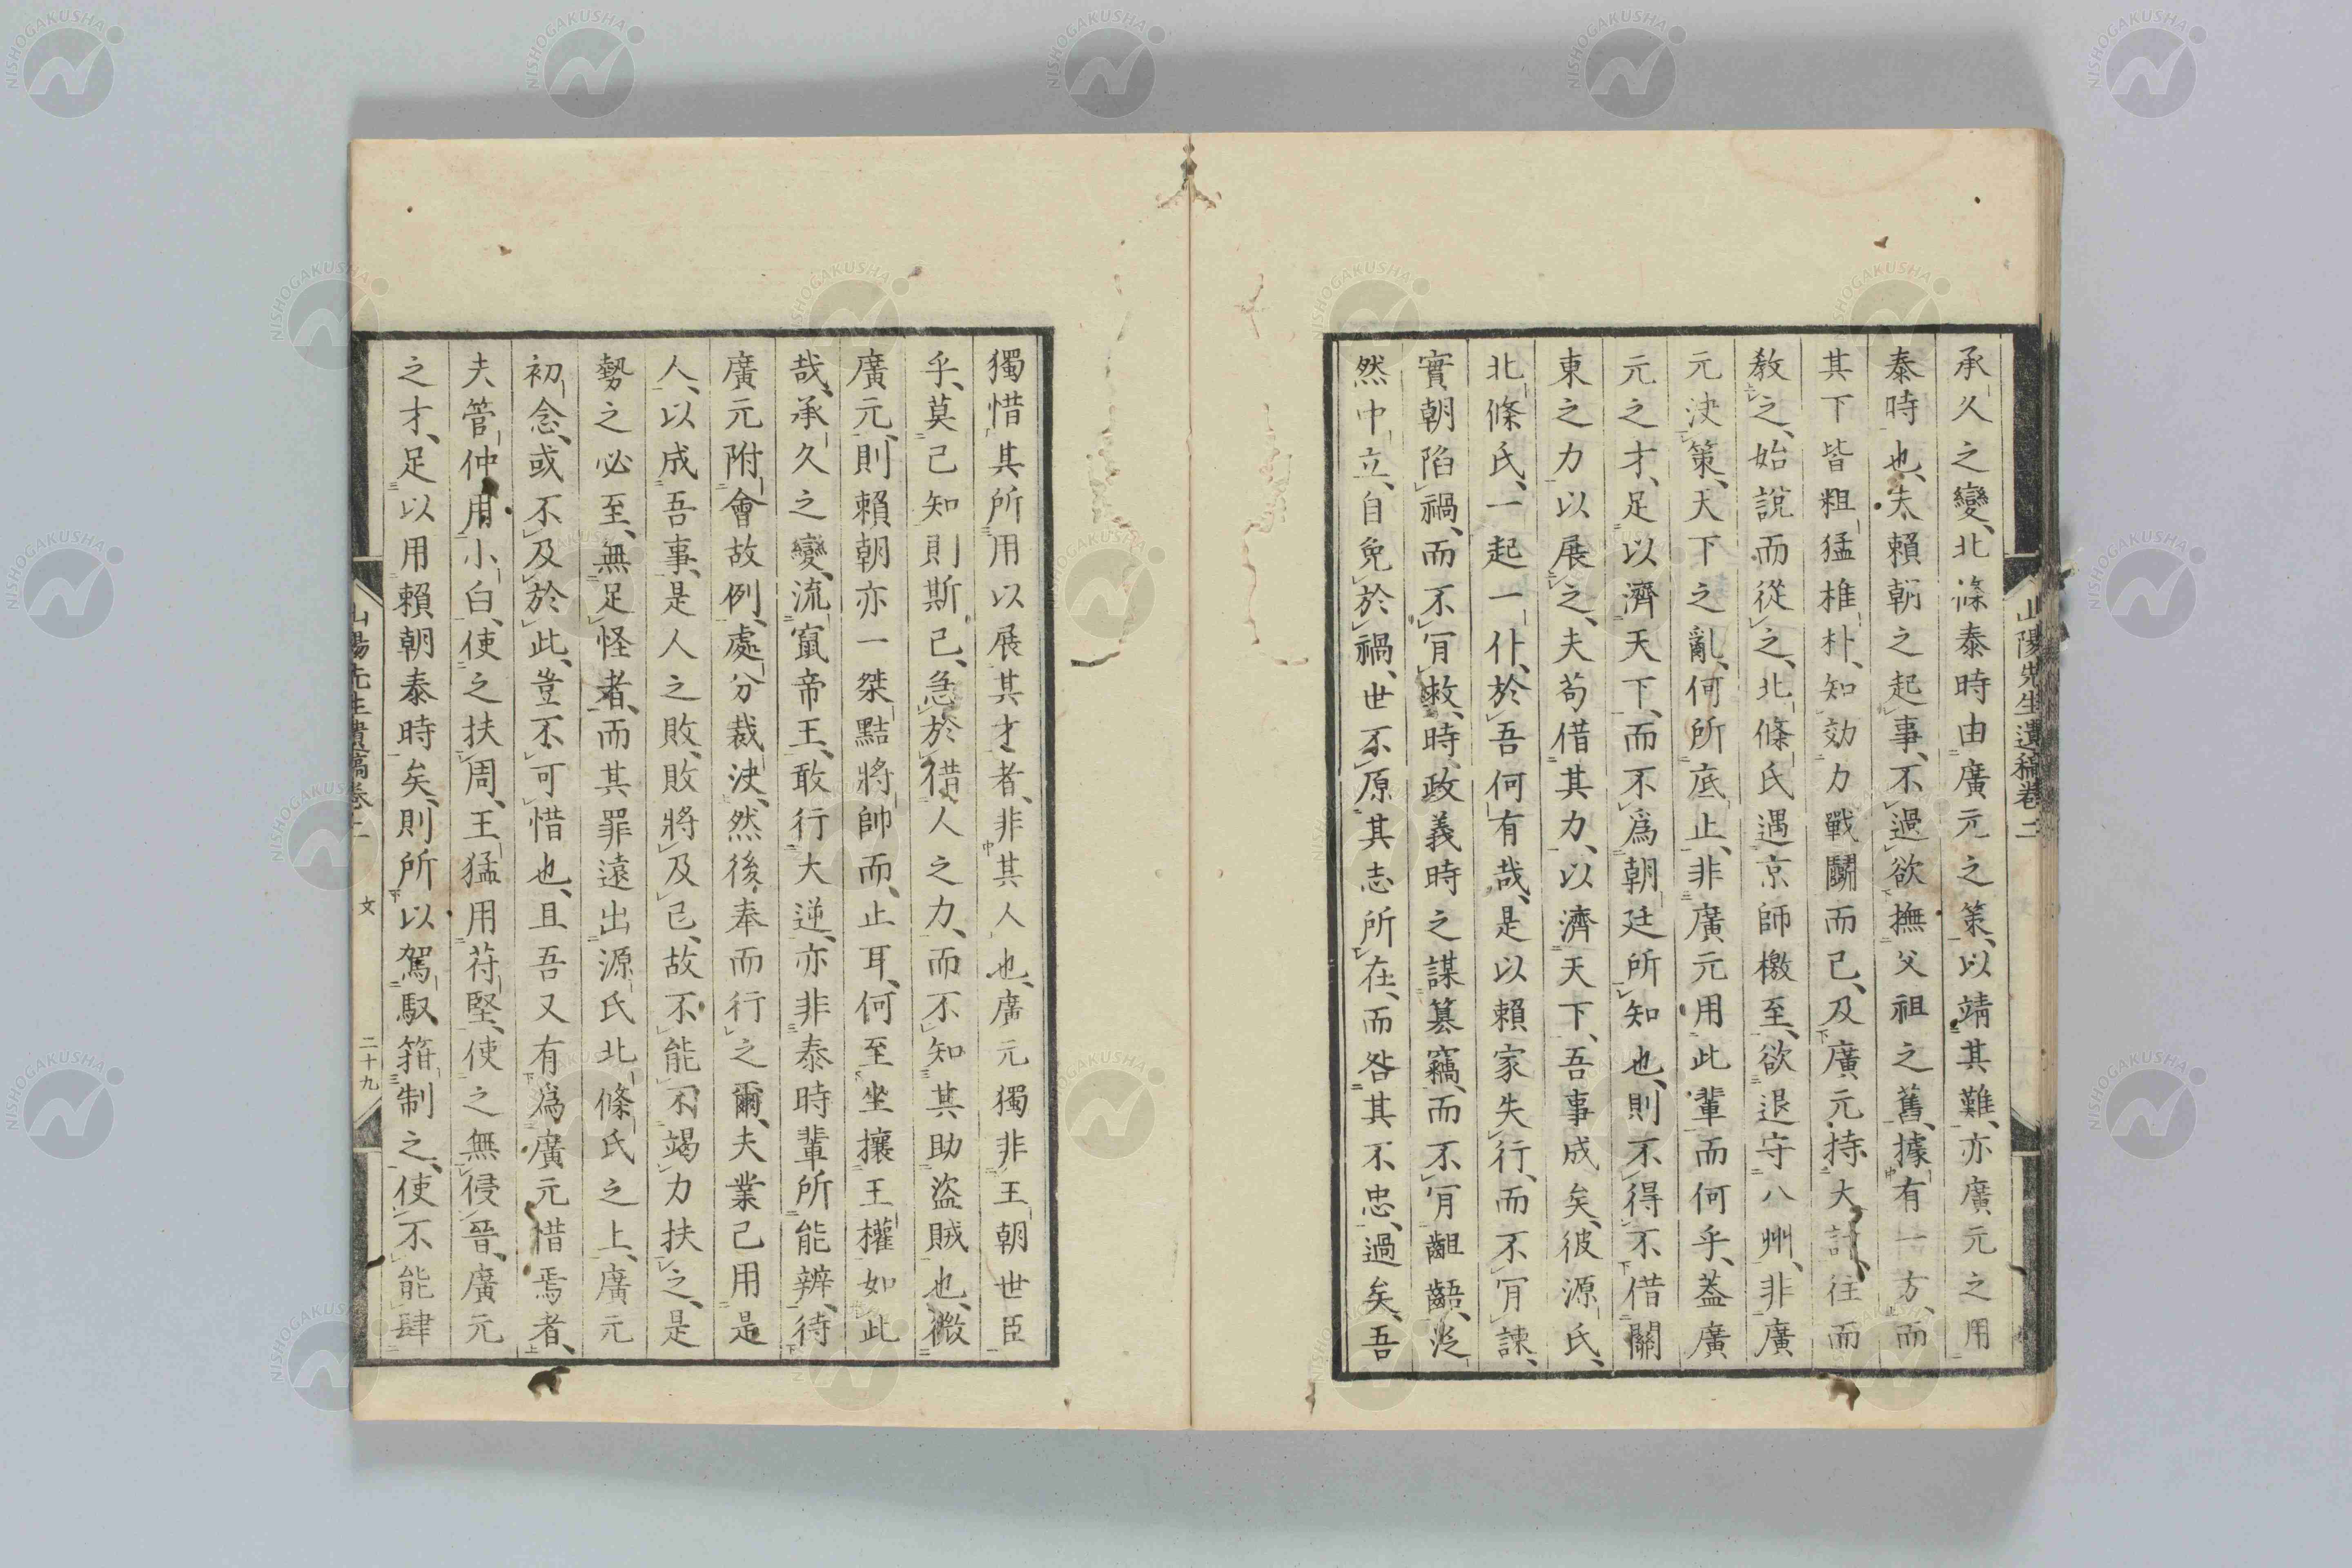 承久之變、北條泰時由廣元之策、以靖其難、亦廣元之用
泰時也、夫賴朝之起事、不過欲撫父祖之舊、據有一方、而
其下皆粗猛椎朴、知効力戰鬭而已、及廣元持大計往而
教之、始說而從之、北條氏遇京師檄至、欲退守八州、非廣
元決策、天下之亂、何所底止、非廣元用此輩而何乎、蓋廣
元之才、足以濟天下、而不爲朝廷所知也、則不得不借關
東之力以展之、夫苟借其力、以濟天下、吾事成矣、彼源氏、
北條氏、一起一仆、於吾何有哉、是以賴家失行、而不肎諫、
實朝陷禍、而不肎救、時政義時之謀簒竊、而不肎齟齬、泛
然中立、自免於禍、世不原其志所在、而咎其不忠、過矣、吾
山陽先生遺稿卷二
獨惜其所用以展其才者、非其人也、廣元獨非王朝世臣
乎、莫已知則斯已、急於借人之力、而不知其助盜賊也、微
廣元、則賴朝亦一桀黠將帥而止耳、何至坐攘王權如此
哉、承久之變、流竄帝王、敢行大逆、亦非泰時輩所能辨、待
廣元附會故例、處分裁決、然後奉而行之爾、夫業已用是
人、以成吾事、是人之敗、敗將及已、故不能不竭力扶之、是
勢之必至、無足怪者、而其罪遠出源氏北條氏之上、廣元
初念、或不及於此、豈不可惜也、且吾又有爲廣元惜焉者、
夫管仲用小白、使之扶周、王猛用苻堅、使之無侵晉、廣元
之才、足以用賴朝泰時矣、則所以駕馭箝制之、使不能肆
山陽先生遺稿卷二 文 二十九
NISHOGAKUSHA